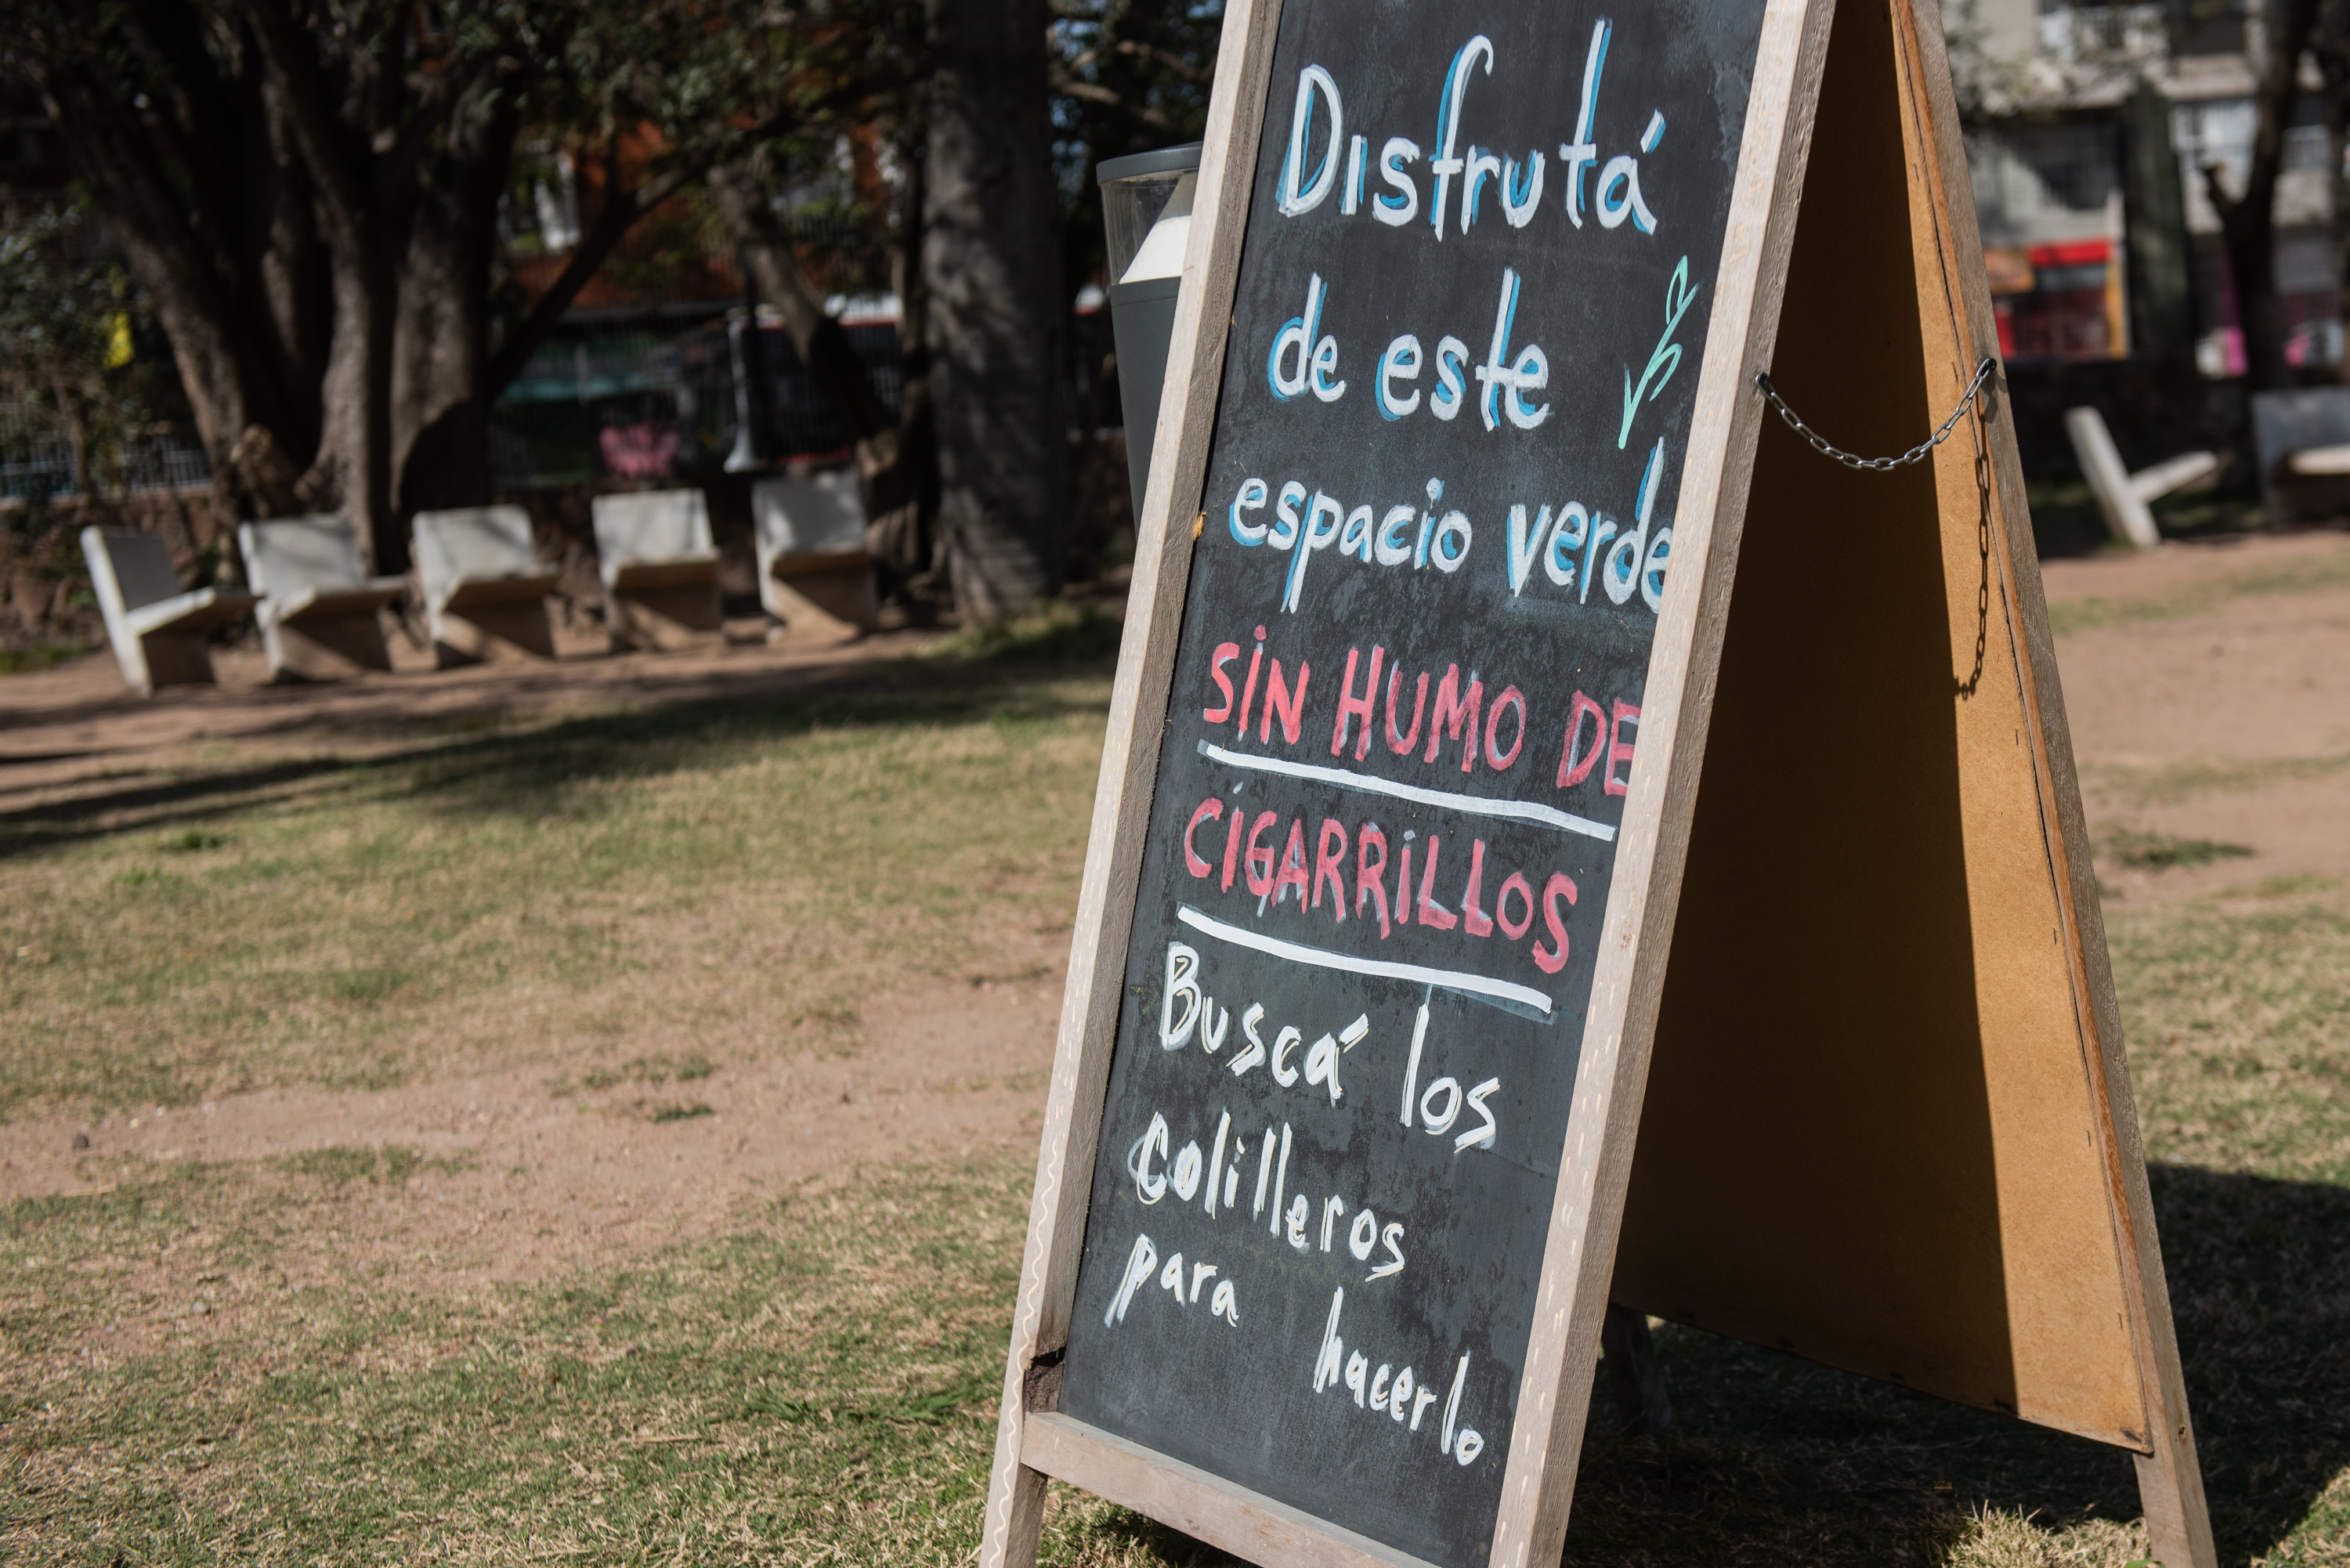 Disfrutá
de este
espacio verde
SIN HUMO DE
CIGARRILLOS
Buscá los
Colilleros
para hacerlo